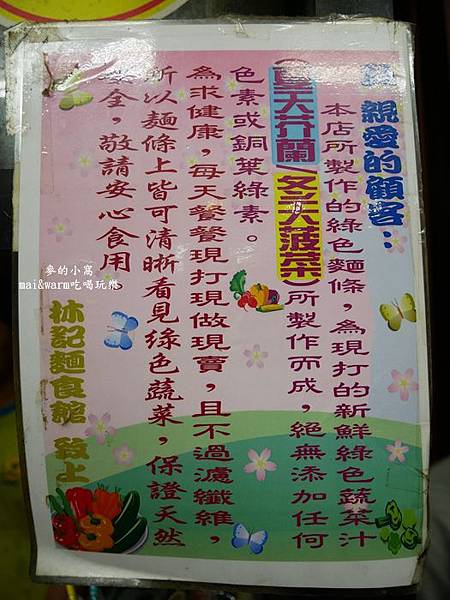 親愛的顧客：
本店所製作的綠色麵條，為現打的新鮮綠色蔬菜汁
（夏天芥蘭/冬天菠菜）所製作而成，絕無添加任何
色素或銅葉綠素。
為求健康，每天餐餐現打現做現賣，且不過濾纖維，
所以麵條上皆可清晰看見綠色蔬菜，保證天然
安全，敬請安心食用
林記麵食館 敬上
麥的小窩
mai&warm吃喝玩樂